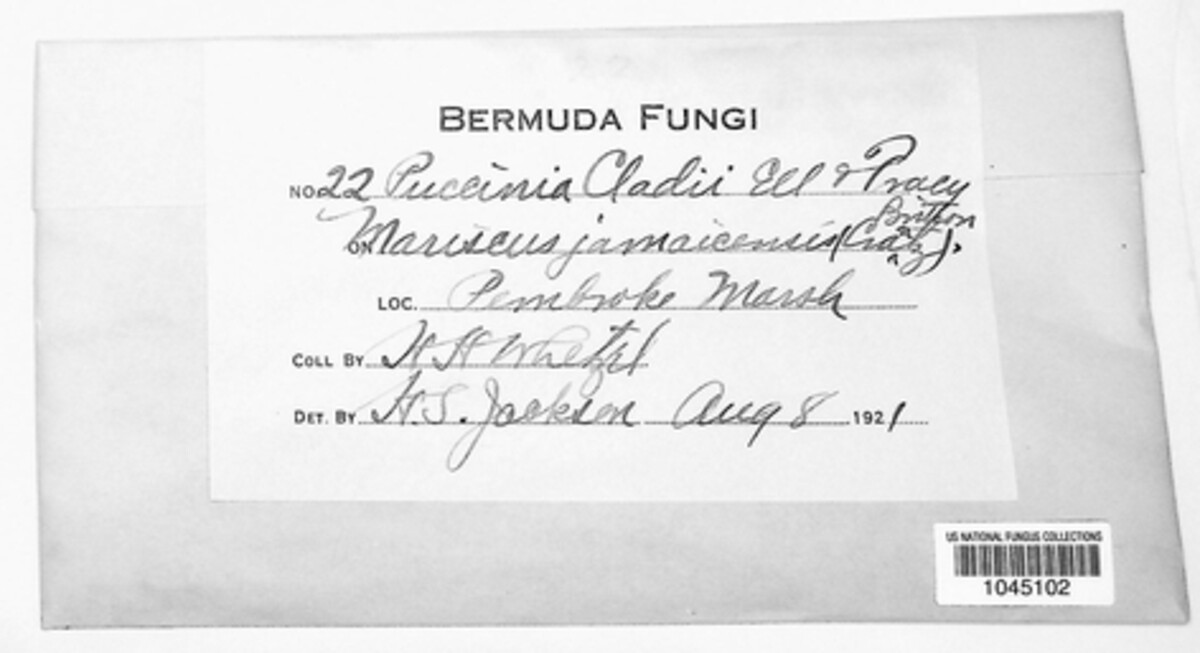 BERMUDA FUNGI
NO. 22 Puccinia Cladii Ell & Tracy
ON Mariscus jamaicensis (Cratz). Britton
LOC. Pembroke Marsh
COLL BY H H Whetzel
DET. BY H.S. Jackson Aug 8 1921
US NATIONAL FUNGUS COLLECTIONS
1045102